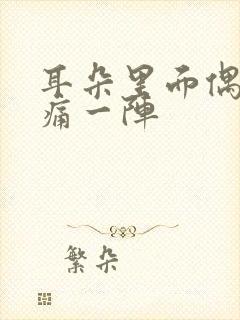 耳朵里而偶
痛一陣
繁朵